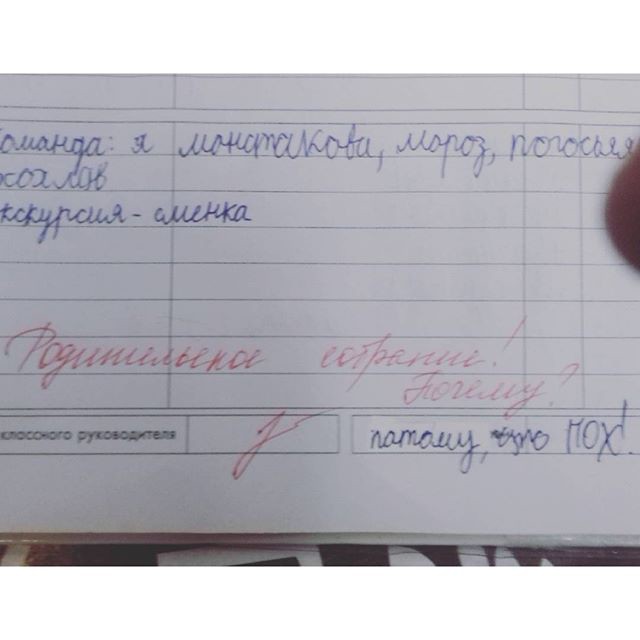 оманда: я монатакова, мороз, погосья
хохлов
кскурсия - сменка
Родительское собрание!
Почему?
классного руководителя
патому, что ПОХ!